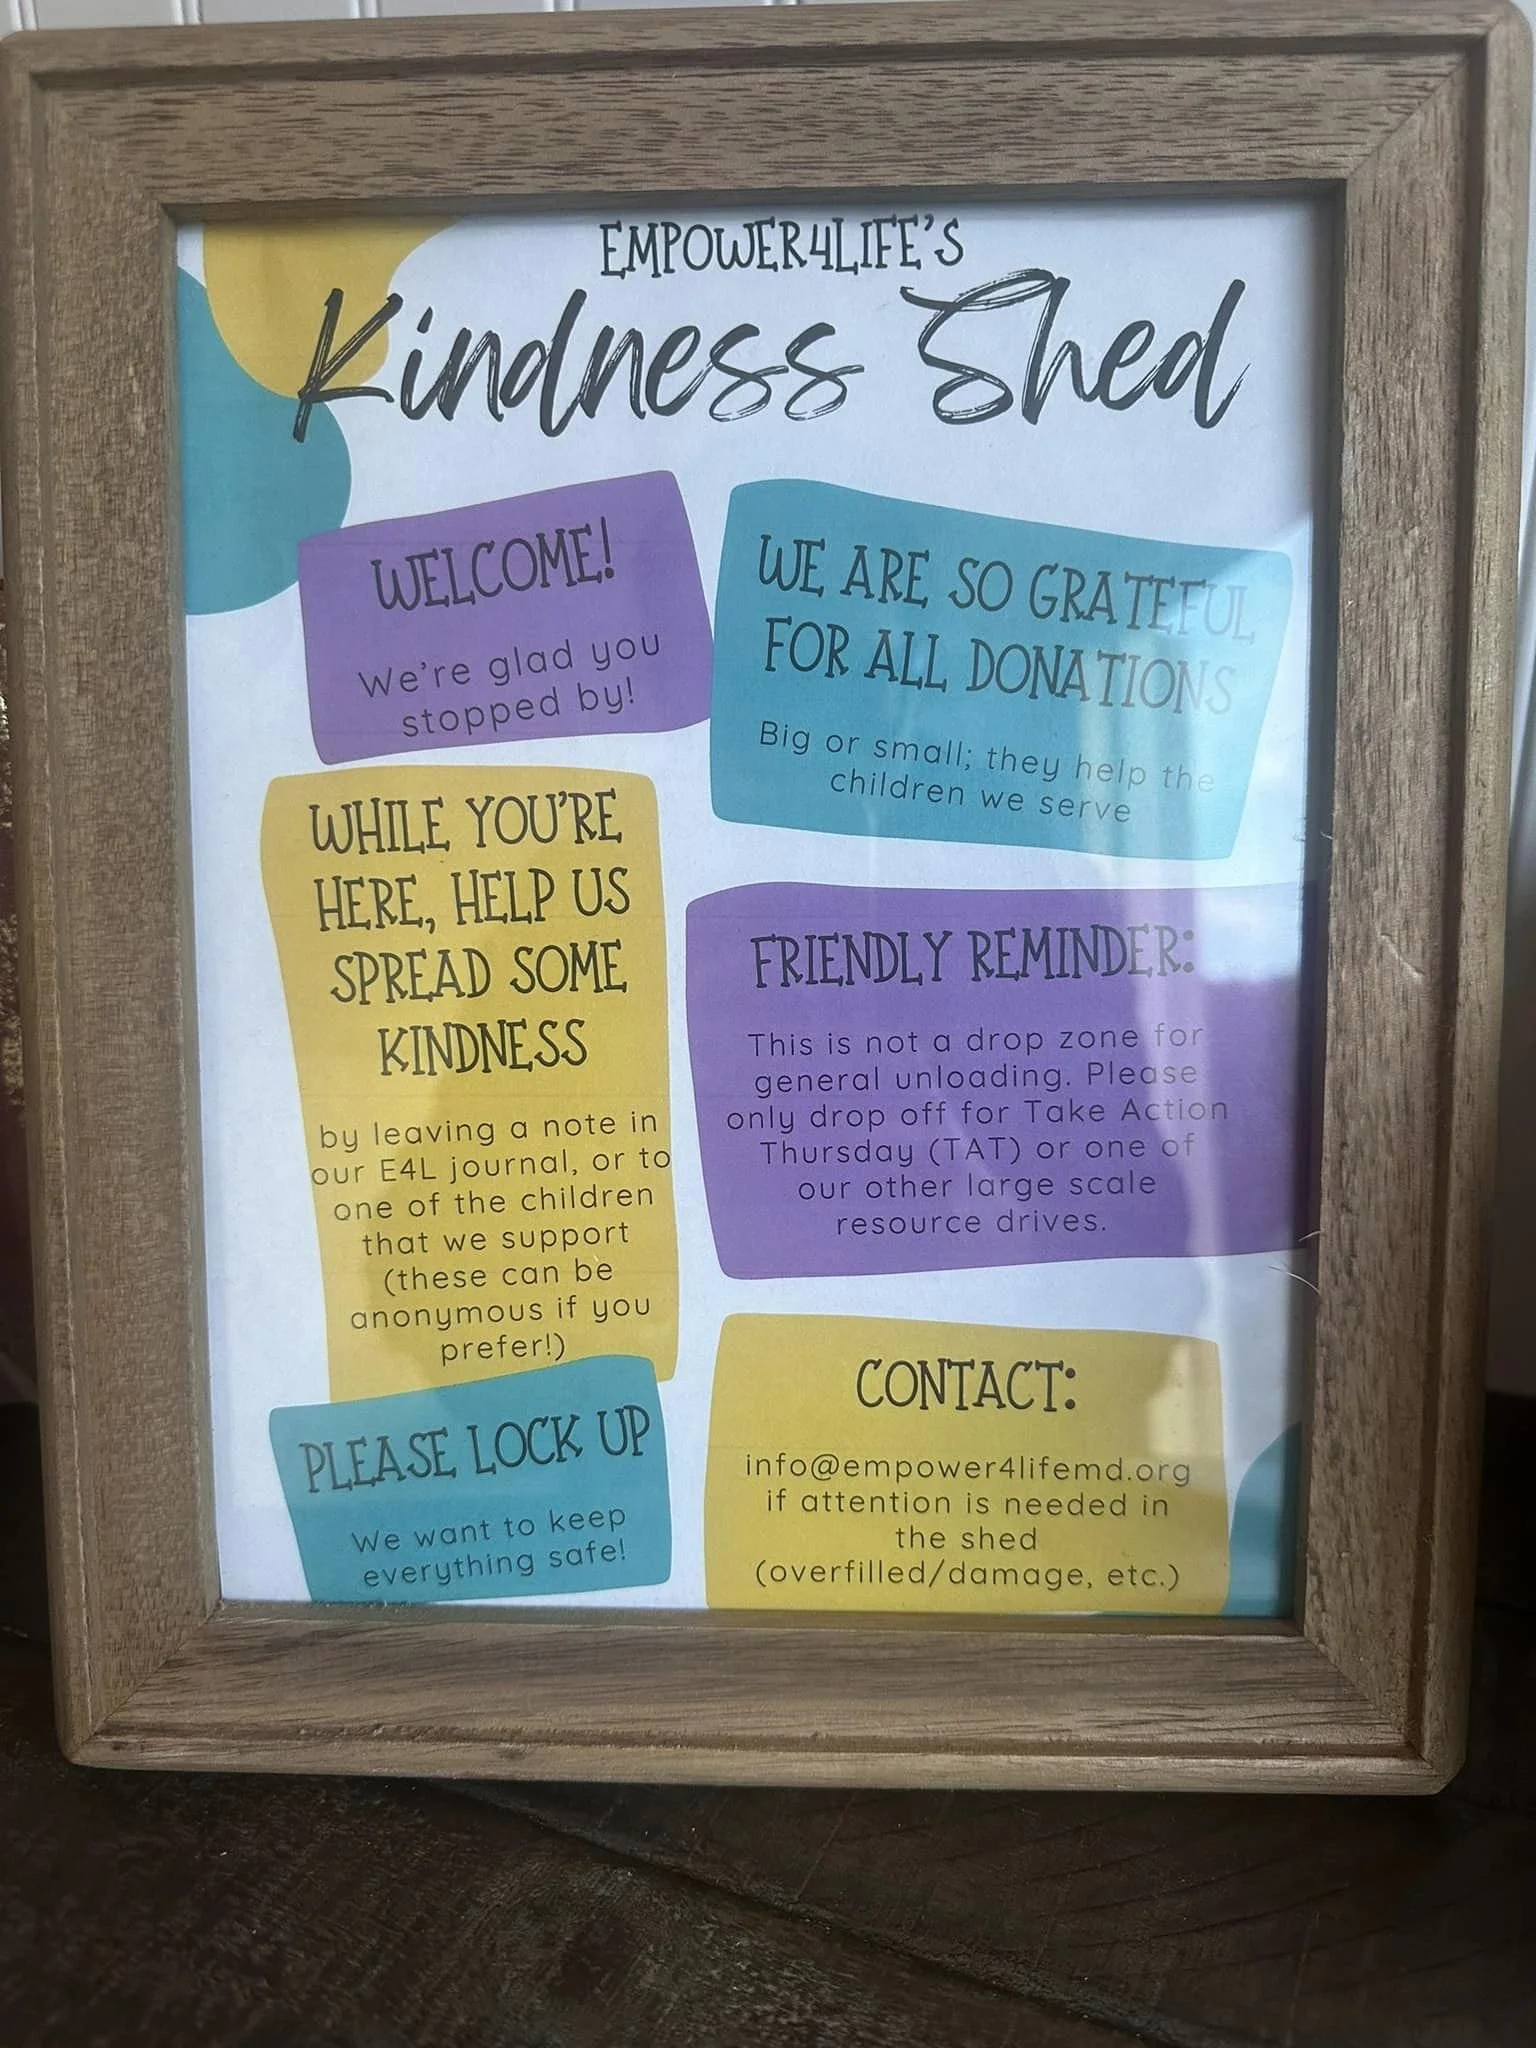 EMPOWER4LIFE'S
Kindness Shed
WELCOME!
We're glad you
stopped by!
WE ARE SO GRATEFUL
FOR ALL DONATIONS
Big or small; they help the
children we serve
WHILE YOU'RE
HERE, HELP US
SPREAD SOME
KINDNESS
by leaving a note in
our E4L journal, or to
one of the children
that we support
(these can be
anonymous if you
prefer!)
FRIENDLY REMINDER:
This is not a drop zone for
general unloading. Please
only drop off for Take Action
Thursday (TAT) or one of
our other large scale
resource drives.
PLEASE LOCK UP
We want to keep
everything safe!
CONTACT:
info@empower4lifemd.org
if attention is needed in
the shed
(overfilled/damage, etc.)